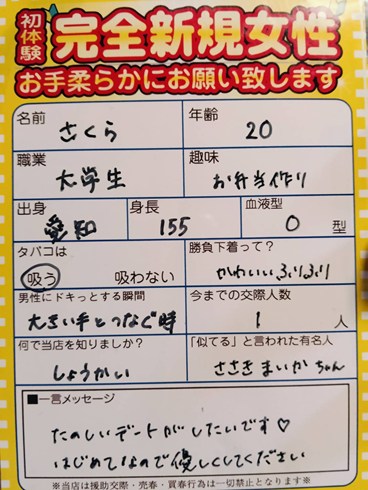 初体験 完全新規女性
お手柔らかにお願い致します
名前 さくら 年齢 20
職業 大学生 趣味 お弁当作り
出身 愛知 身長 155 血液型 O 型
タバコは 吸う 吸わない 勝負下着って? かわいいふりふり
男性にドキっとする瞬間 大きい手とつなぐ時 今までの交際人数 1 人
何で当店を知りましたか? しょうかい 「似てる」と言われた有名人 ささきまいかちゃん
■一言メッセージ
たのしいデートがしたいです♡
はじめてなので優しくしてください
※当店は援助交際・売春・買春行為は一切禁止となります※